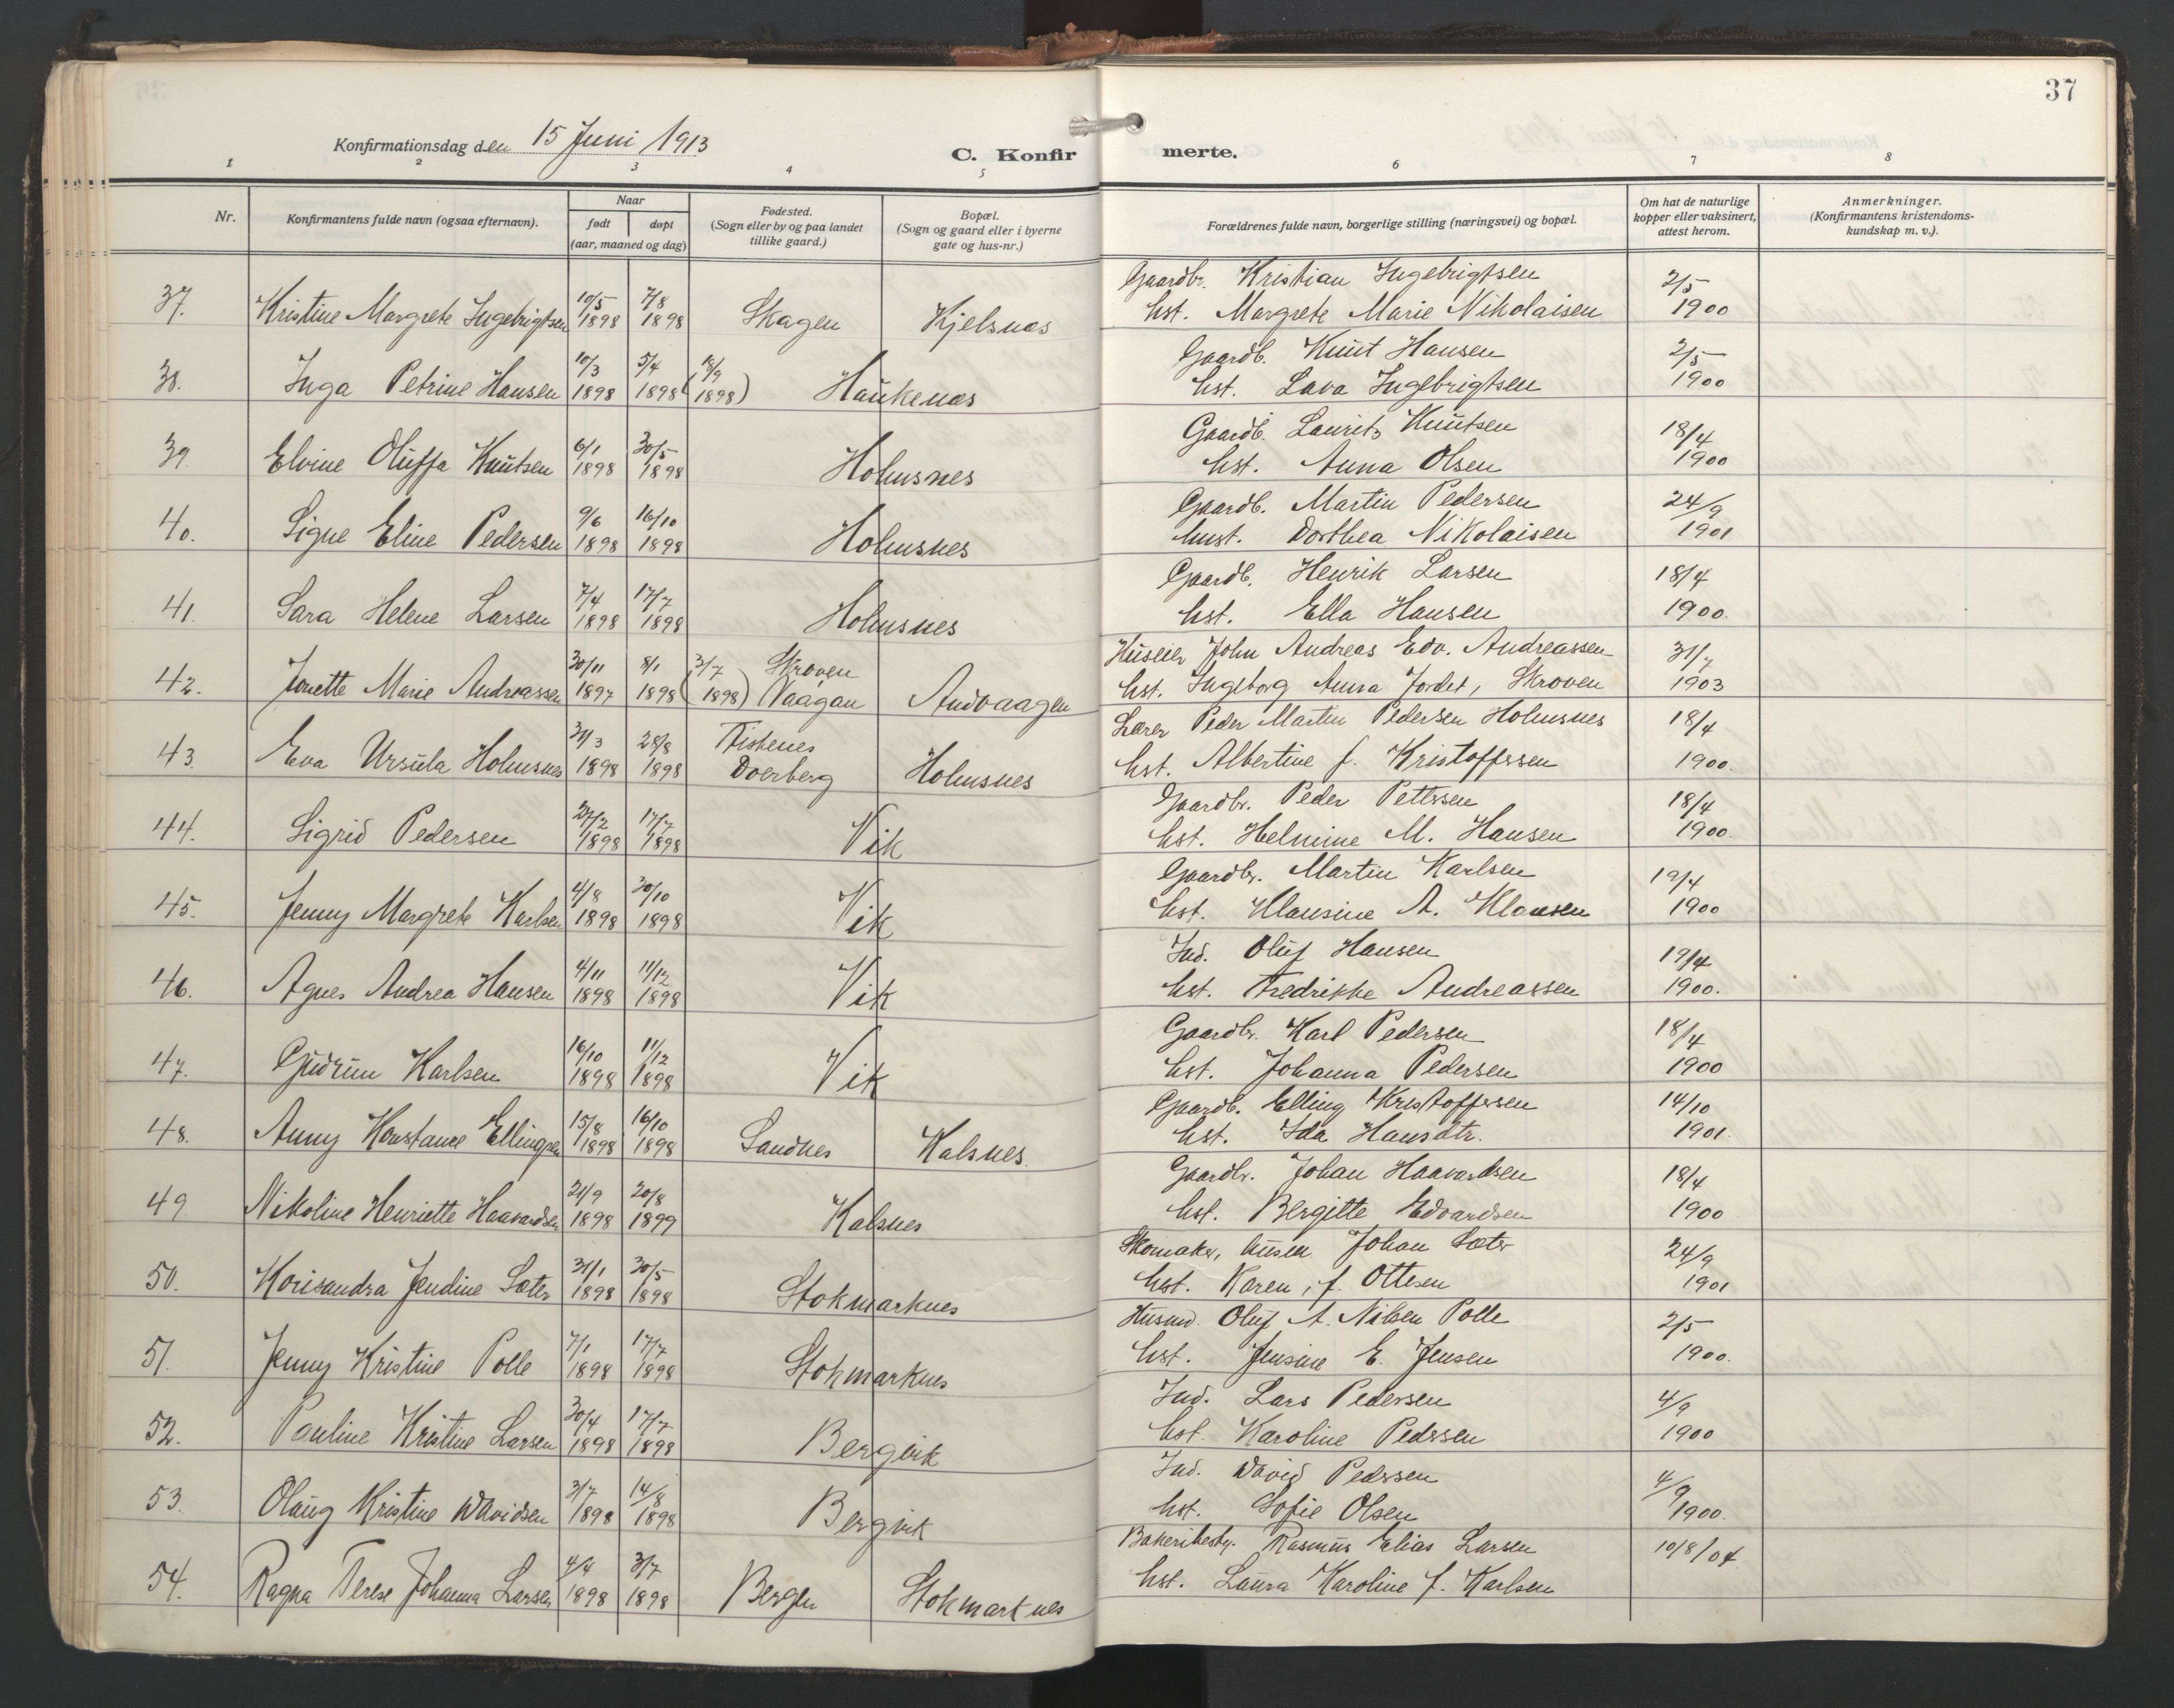 37
Konfirmationsdag den 15 Juni 1913
C. Konfirmerte.
1 2 3 4 5 6 7 8
Nr. Konfirmantens fulde navn (ogsaa efternavn). Naar født døpt (aar, maaned og dag) Fødested. (Sogn eller by og paa landet tillike gaard.) Bopæl. (Sogn og gaard eller i byerne gate og hus-nr.) Forældrenes fulde navn, borgerlige stilling (næringsvei) og bopæl. Om hat de naturlige kopper eller vaksinert, attest herom. Anmerkninger. (Konfirmantens kristendoms-kundskap m. v.).
37. Kristine Margrete Ingebrigtsen 10/5 1898 7/8 1898 Skagen Kjelsnæs Gaardbr. Kristian Ingebrigtsen 2/5 1900
hst. Margrete Marie Nikolaisen
38. Inga Petrine Hansen 10/3 1898 5/4 1898 (18/9 1898) Haukenæs Gaardb. Knut Hansen 2/5 1900
hst. Lava Ingebrigtsen
39. Elvine Oluffa Knutsen 6/1 1898 30/5 1898 Holmsnes Gaardb. Laurits Knutsen 18/4 1900
hst. Anna Olsen
40. Signe Eline Pedersen 9/6 1898 16/10 1898 Holmsnes Gaardb. Martin Pedersen 24/9 1901
hust. Dorthea Nikolaisen
41. Sara Helene Larsen 7/4 1898 17/7 1898 Holmsnes Gaardb. Henrik Larsen 18/4 1900.
hst. Ella Hansen
42. Jonette Marie Andreassen 30/11 1897 8/1 1898 (3/7 1898) Skroven Vaagan Andvaagen Huseier John Andreas Edv. Andreassen 31/7 1903
hst. Ingeborg Anna Jordet, Skroven
43. Eva Ursula Holmsnes 31/3 1898 28/8 1898 Fiskenes Dverberg Holmsnes Lærer Peder Martin Pedersen Holmsnes 18/4 1900.
hst. Albertine f. Kristoffersen
44. Sigrid Pedersen 27/2 1898 17/7 1898 Vik Gaardbr. Peder Pettersen 18/4 1900.
hst. Helmine M. Hansen
45. Jenny Margrete Karlsen 4/8 1898 30/10 1898 Vik Gaardbr. Martin Karlsen 19/4 1900
hst. Klausine A. Klausen
46. Agnes Andrea Hansen 4/11 1898 11/12 1898 Vik Ind. Oluf Hansen 19/4 1900.
hst. Fredrikke Andreassen
47. Gudrun Karlsen 16/10 1898 11/12 1898 Vik Gaardbr. Karl Pedersen 18/4 1900
hst. Johanna Pedersen
48. Anny Konstance Ellingsen 15/8 1898 16/10 1898 Sandnes Kalsnes. Gaardb. Elling Kristoffersen 14/10 1901.
hst. Ida Hansdtr.
49. Nikoline Henriette Haavardsen 21/9 1898 20/8 1899 Kalsnes Gaardbr. Johan Haavardsen 18/4 1900
hst. Bergitte Edvardsen
50. Korisandra Jendine Sæter 31/1 1898 30/5 1898 Stokmarknes Skomaker, huseier Johan Sæter 24/9 1901
hst. Karen, f. Ottesen
51. Jenny Kristine Polle 7/1 1898 17/7 1898 Stokmarknes Husmd. Oluf A. Nilsen Polle 2/5 1900.
hst. Jensine E. Jensen
52. Pauline Kristine Larsen 30/4 1898 17/7 1898 Bergvik Ind. Lars Pedersen 4/9 1900
hst. Karoline Pedersen
53. Olaug Kristine Davidsen 3/7 1898 14/8 1898 Bergvik Ind. David Pedersen 4/9 1900.
hst. Sofie Olsen
54. Ragna Terese Johanna Larsen 4/4 1898 3/7 1898 Bergen Stokmarknes Bakeribesty. Rasmus Elias Larsen 10/8/04
hst. Laura Karoline f. Karlsen